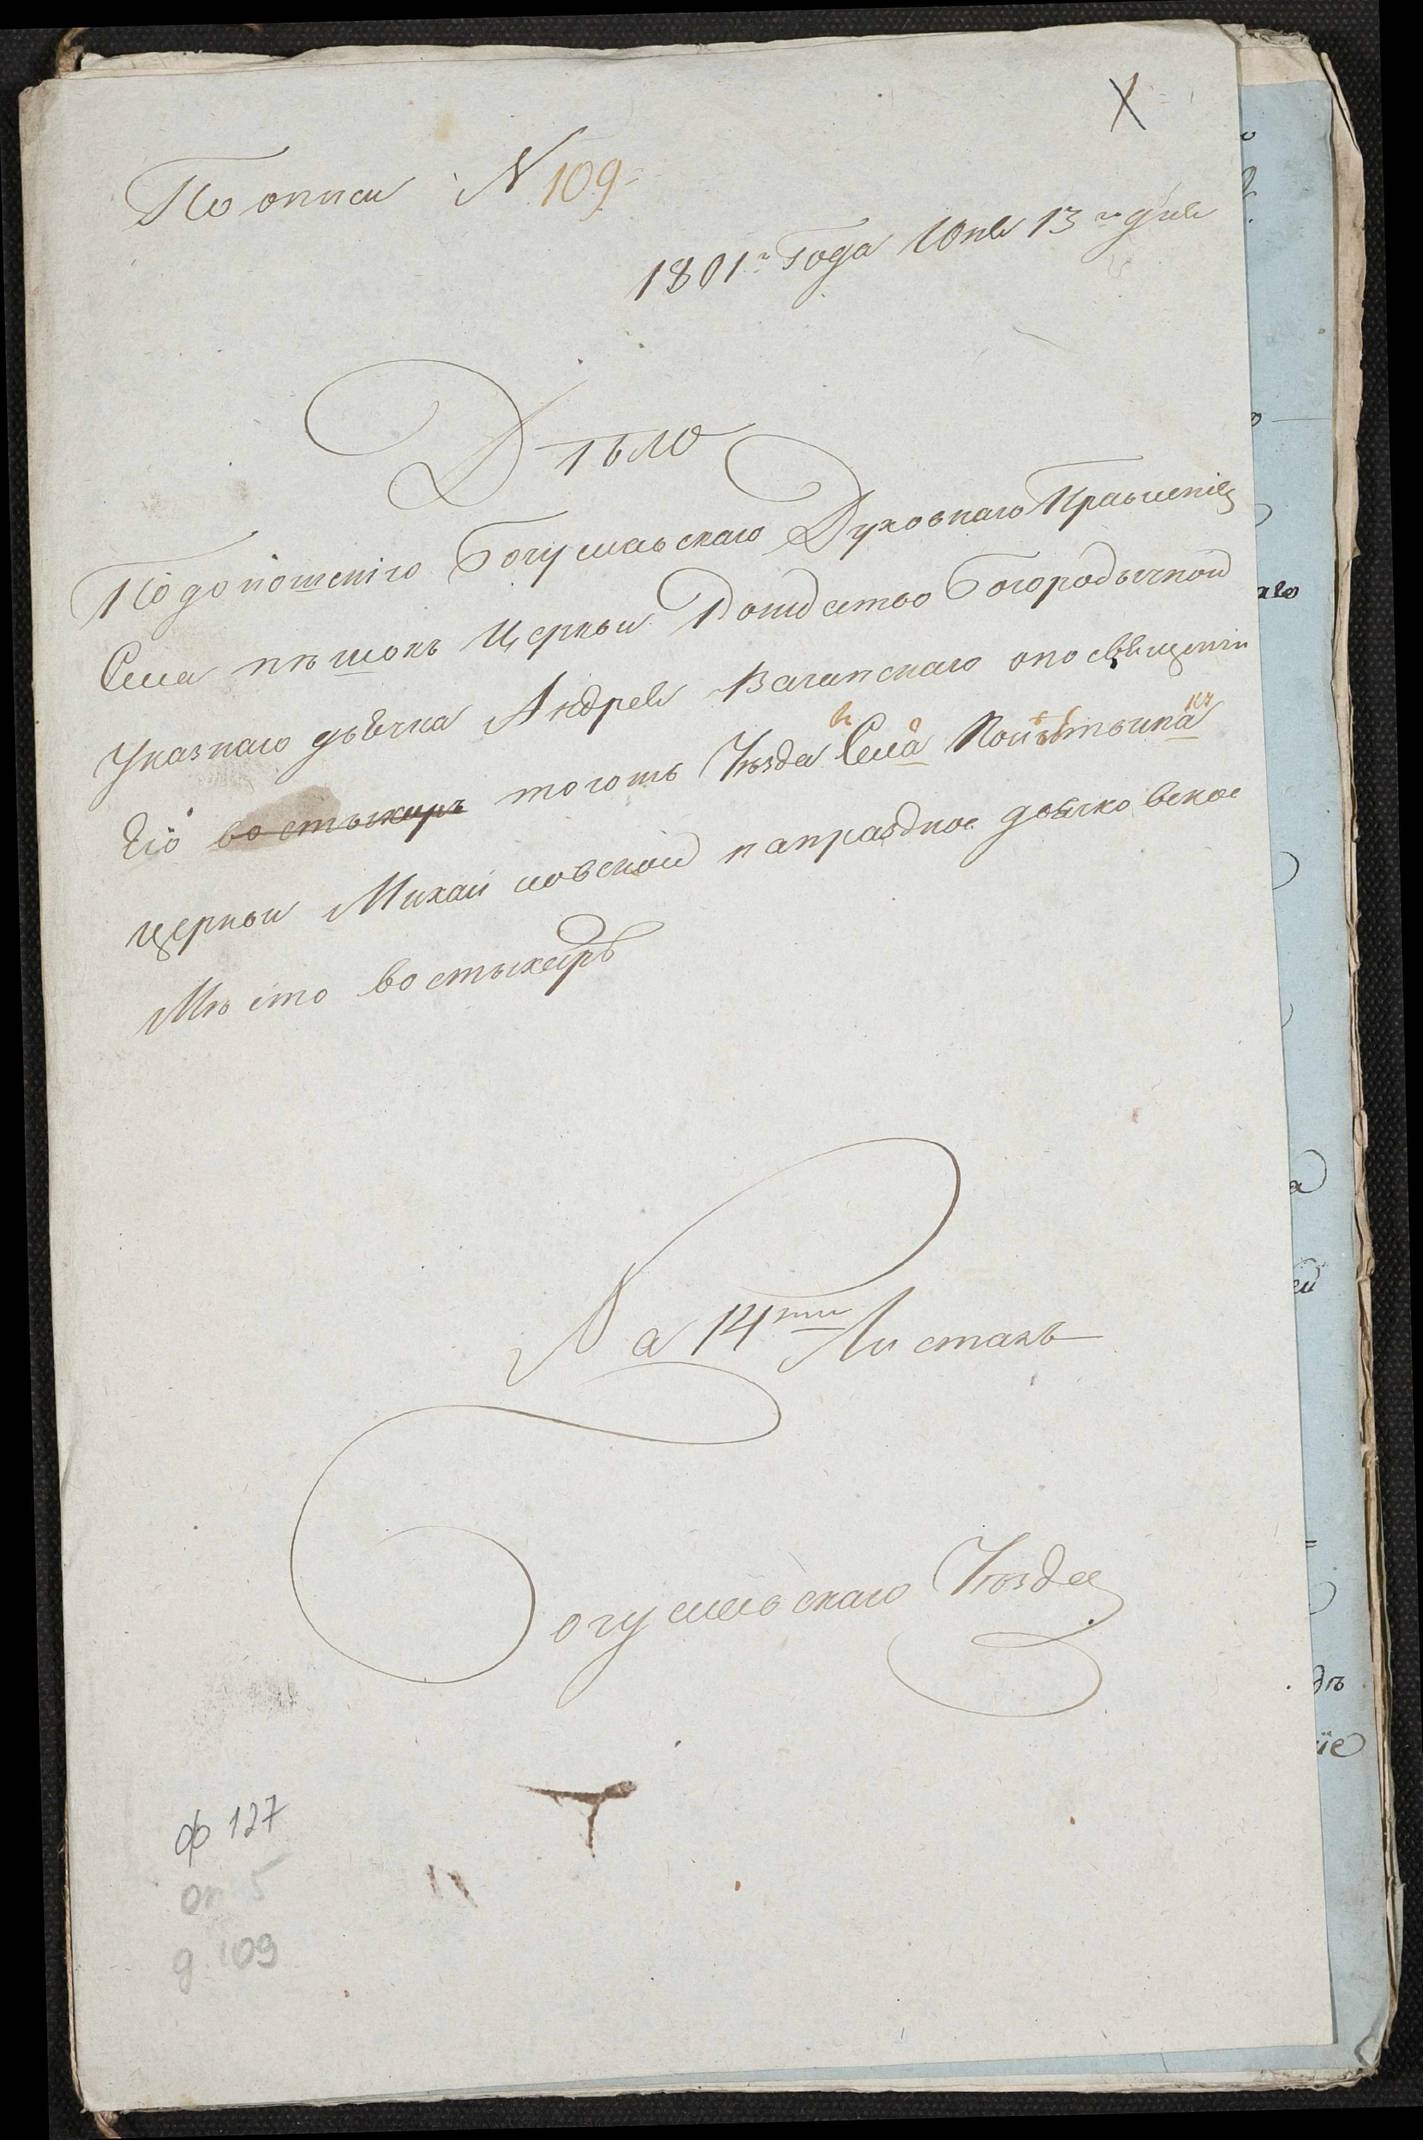 По описи № 109
1801го Года Юня 13го дня
Дѣло
По доношенію Богуславскаго Духовнаго Правления
Села пѣшокъ Церкви Рождество Богородычной
Указнаго дьячка Андрея опосвящении
Его во стыхаръ тогожъ Уѣзда въ Село
церкви Михайловской напраздное дьячковское
Мѣсто во стыхаръ
На 14ти Листахъ
Богуславскаго Уѣзда
ф 127
оп 5
д 109